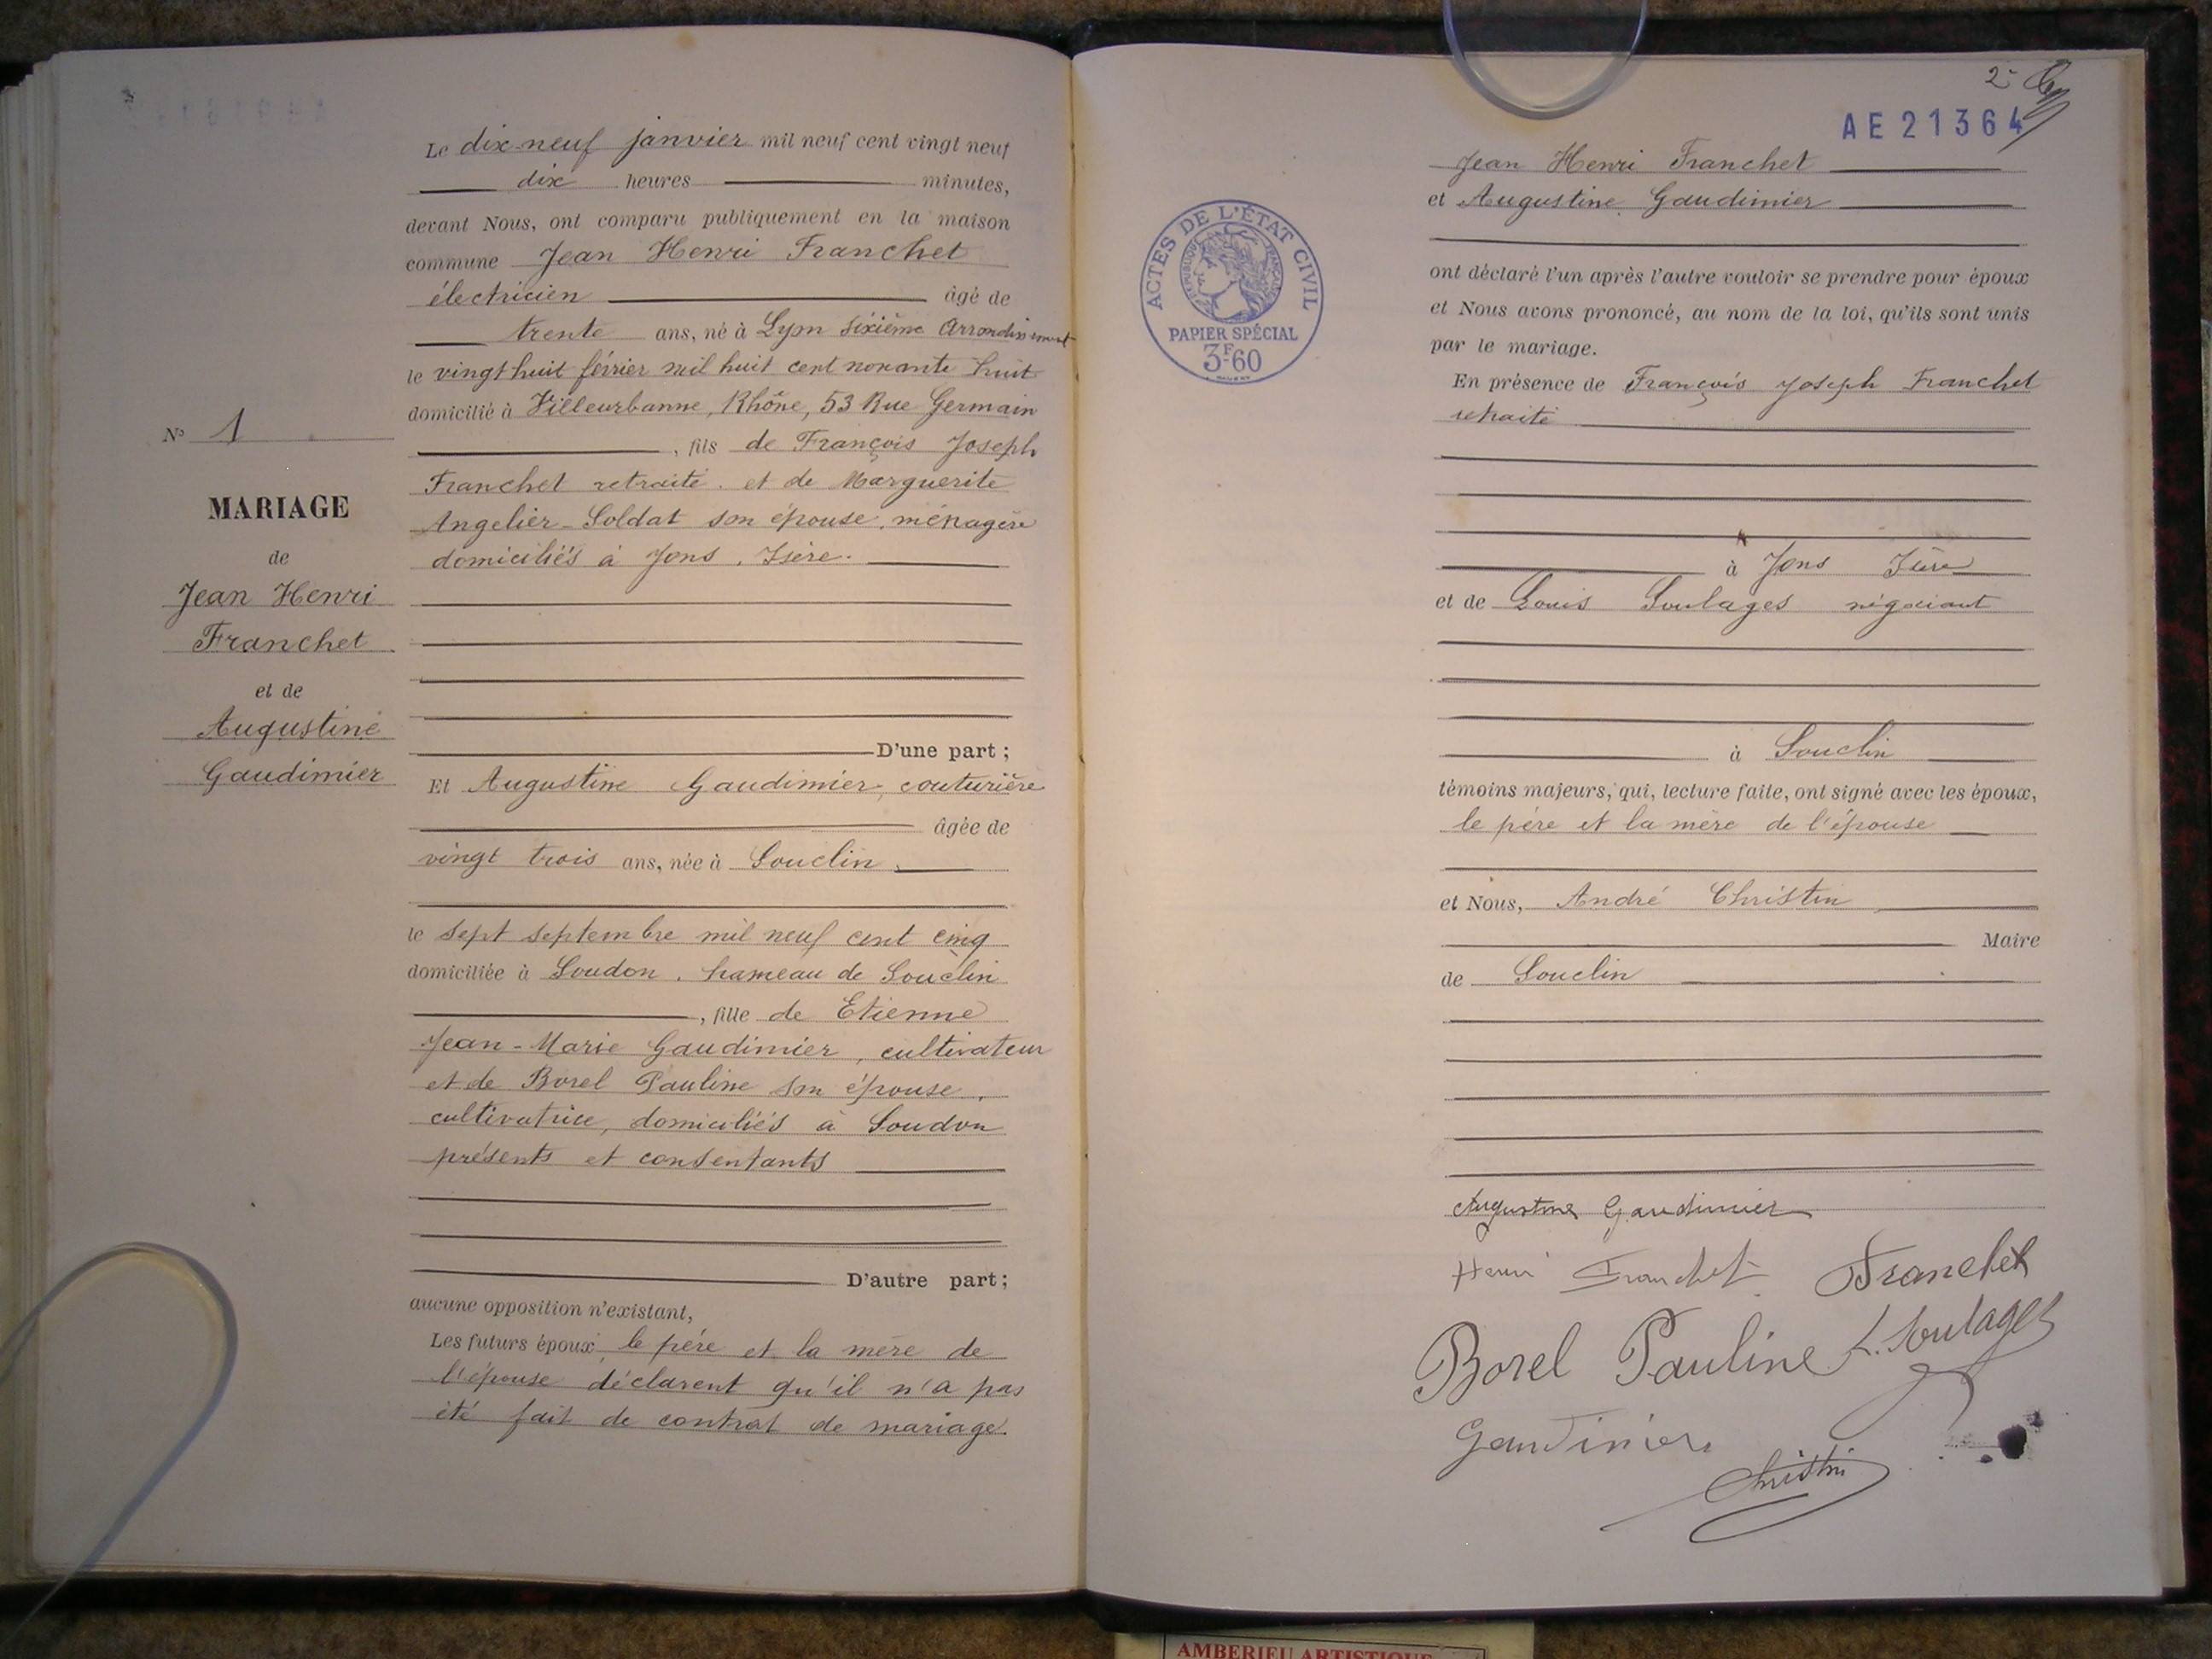 N° 1
MARIAGE
de
Jean Henri
Franchet
et de
Augustine
Gaudimier
Le dix-neuf janvier mil neuf cent vingt neuf
dix heures minutes,
devant Nous, ont comparu publiquement en la maison
commune Jean Henri Franchet
électricien âgé de
trente ans, né à Lyon sixième Arrondissement
le vingt huit février mil huit cent nonante huit
domicilié à Villeurbanne, Rhône, 53 Rue Germain
, fils de François Joseph
Franchet retraité. et de Marguerite
Angelier-Soldat son épouse, ménagère
domiciliés à Jons, Isère.
D'une part ;
Et Augustine Gaudimier, couturière
âgée de
vingt trois ans, née à Souclin,
le sept septembre mil neuf cent cinq
domiciliée à Soudon, hameau de Souclin
, fille de Etienne
Jean-Marie Gaudimier, cultivateur
et de Borel Pauline son épouse,
cultivatrice, domiciliés à Soudon
présents et consentants
D'autre part ;
aucune opposition n'existant,
Les futurs époux, le père et la mère de
l'épouse déclarent qu'il n'a pas
été fait de contrat de mariage.
2e
AE21364
ACTES DE L'ÉTAT CIVIL
RÉPUBLIQUE FRANÇAISE
PAPIER SPÉCIAL
3F60
Jean Henri Franchet
et Augustine Gaudimier
ont déclaré l'un après l'autre vouloir se prendre pour époux
et Nous avons prononcé, au nom de la loi, qu'ils sont unis
par le mariage.
En présence de François Joseph Franchet
retraité
à Jons Isère
et de Louis Soulages négociant
à Souclin
témoins majeurs, qui, lecture faite, ont signé avec les époux,
le père et la mère de l'épouse
et Nous, André Christin
Maire
de Souclin
Augustine Gaudimier
Henri Franchet Franchet
Borel Pauline L. Soulages
Gaudimier
Christin
AMBERIEU ARTISTIQUE